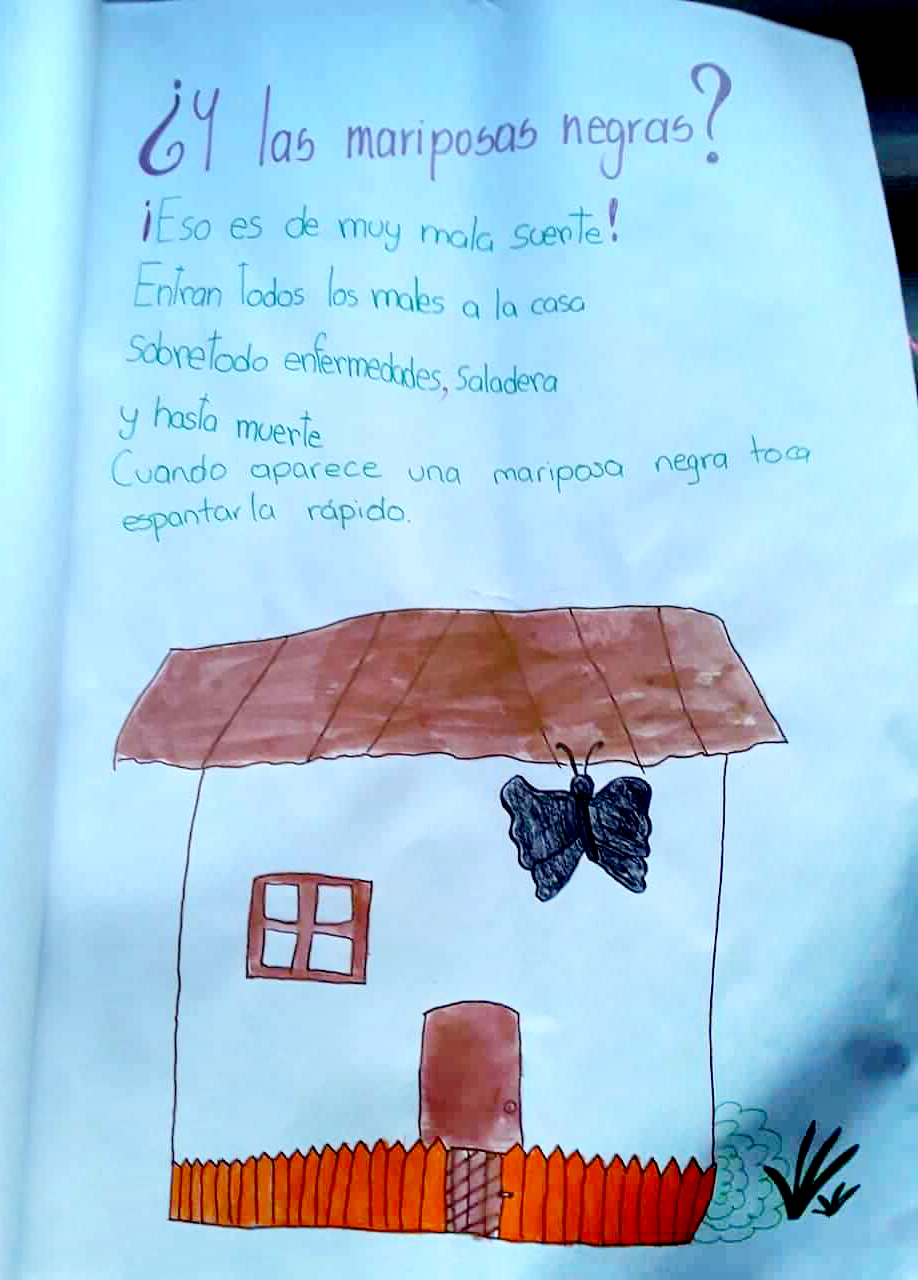 ¿Y las mariposas negras?
¡Eso es de muy mala suerte!
Entran todos los males a la casa
sobretodo enfermedades, saladera
y hasta muerte
Cuando aparece una mariposa negra toca
espantarla rápido.